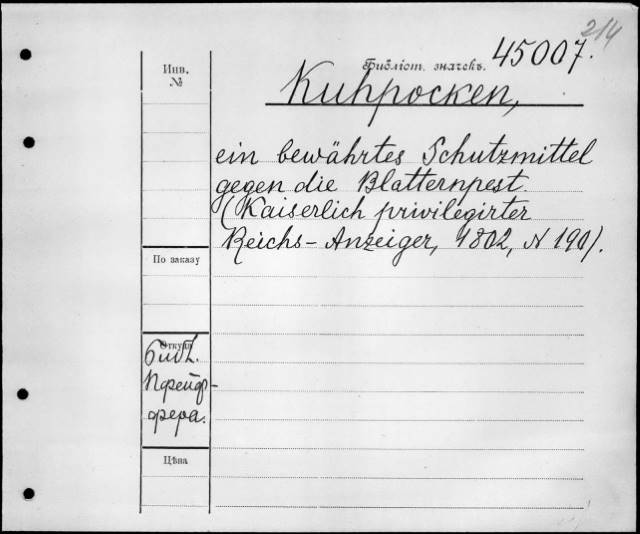 214
Библіот. значекъ. 45007.
Инв.
№
Kuhpocken,
ein bewährtes Schutzmittel
gegen die Blatternpest.
(Kaiserlich privilegirter
Reichs-Anzeiger, 1802, N 190).
По заказу
Откуда
Библ.
Пфейф-
фера.
Цѣна